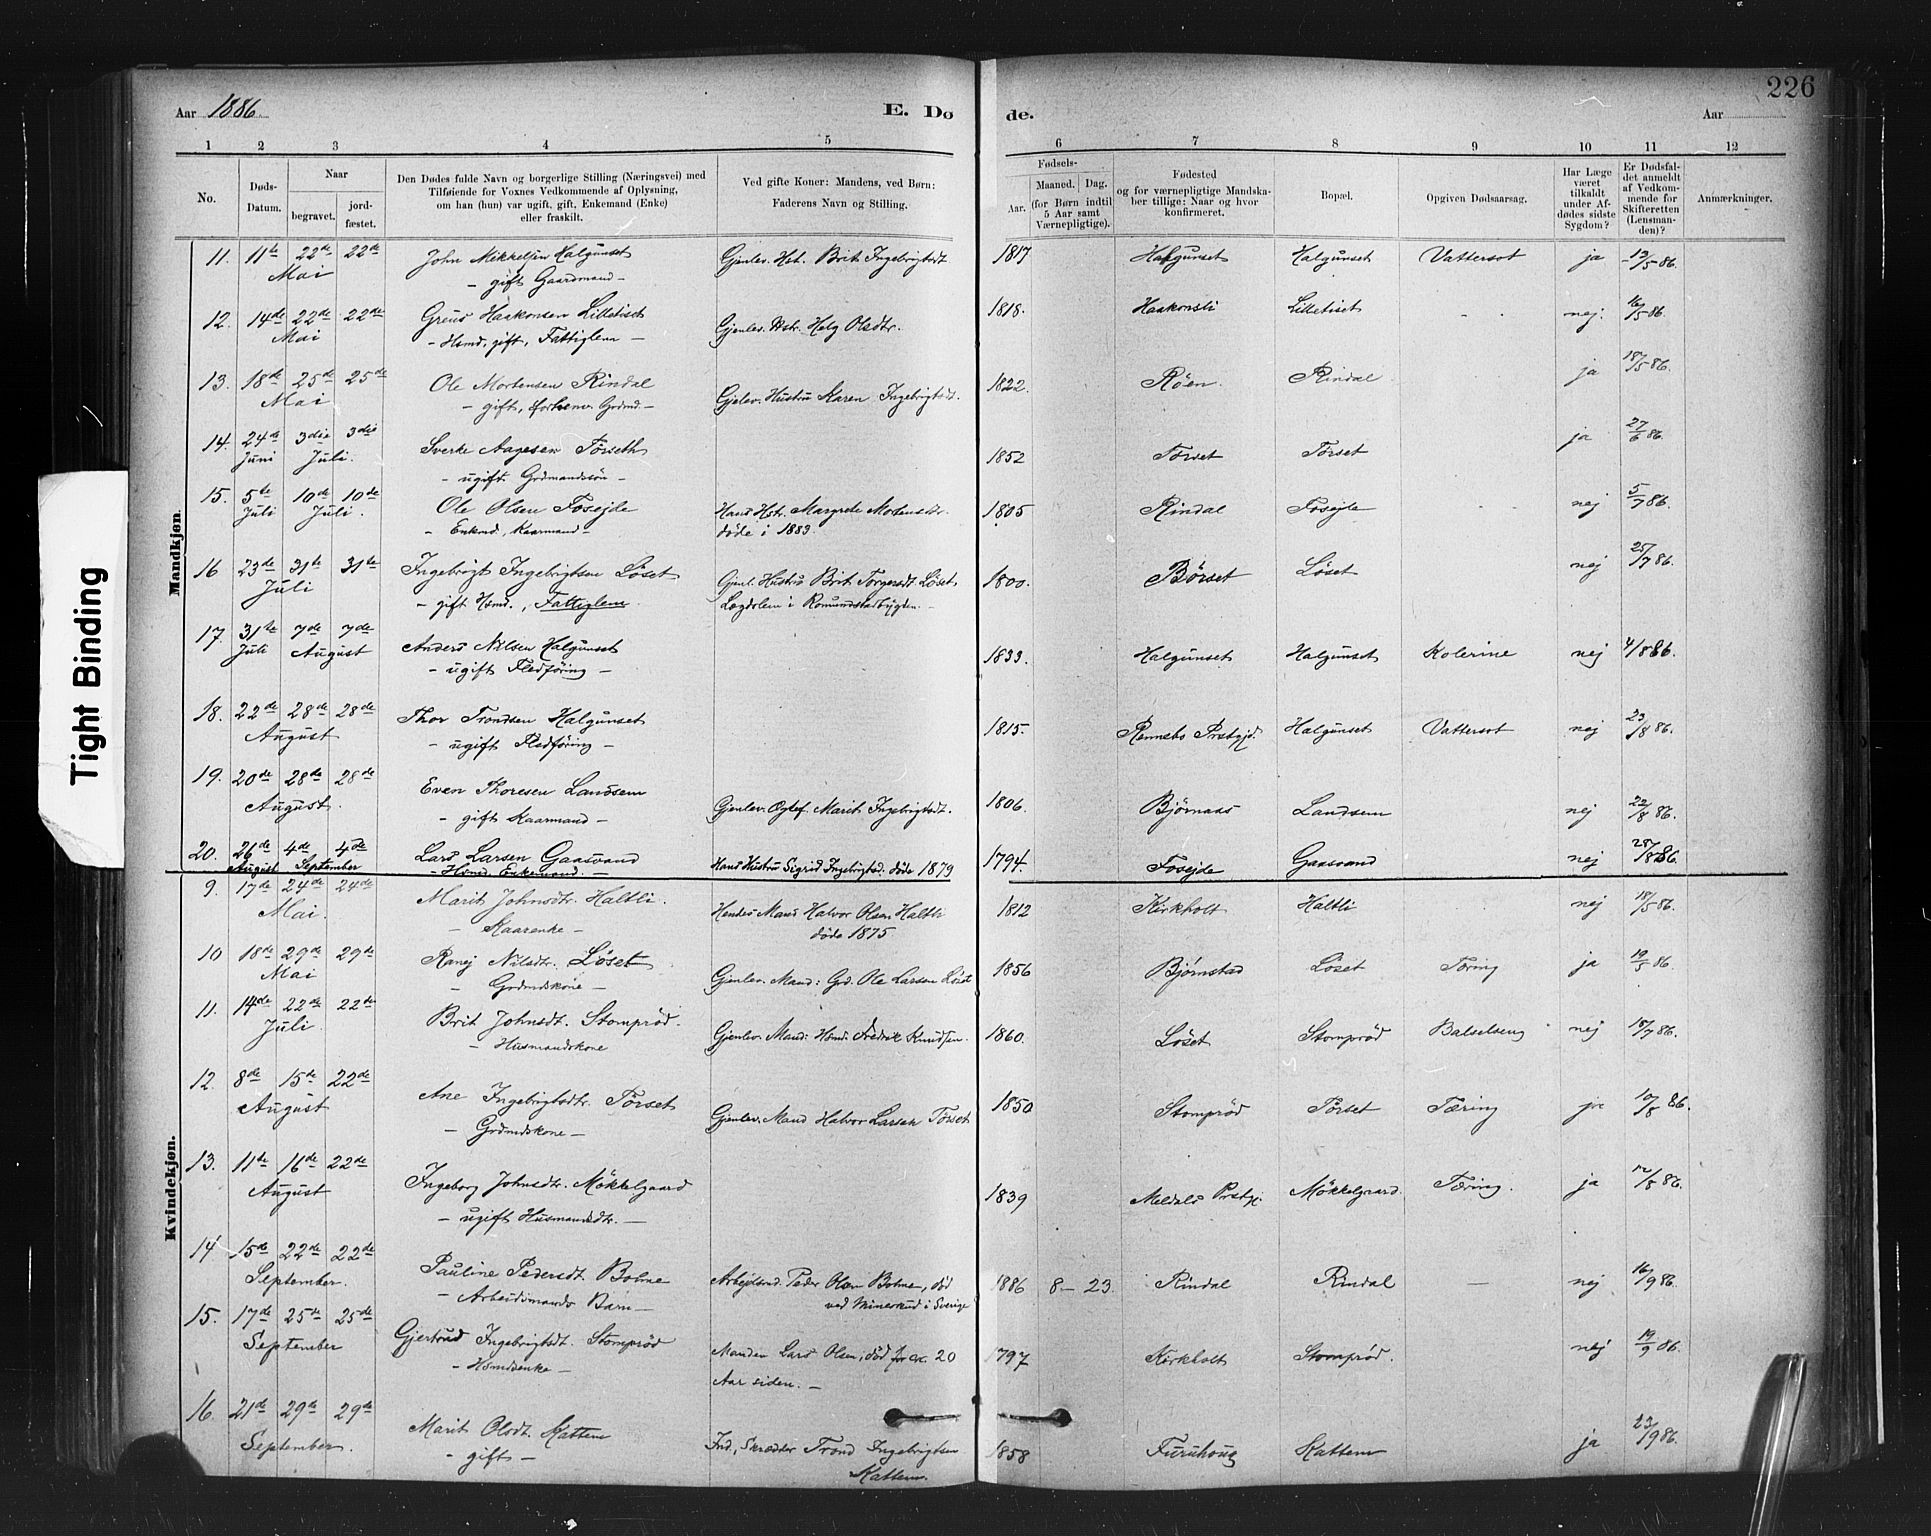 226
Aar 1886.
E. Dø de.
Aar
1 2 3 4 5 6 7 8 9 10 11 12
No.
Døds-Datum.
Naar
begravet.
jord-fæstet.
Den Dødes fulde Navn og borgerlige Stilling (Næringsvei) med
Tilføiende for Voxnes Vedkommende af Oplysning,
om han (hun) var ugift, gift, Enkemand (Enke)
eller fraskilt.
Ved gifte Koner: Mandens, ved Børn:
Faderens Navn og Stilling.
Fødsels-
Aar. Maaned. Dag.
(for Børn indtil
5 Aar samt
Værnepligtige).
Fødested
og for værnepligtige Mandska-
ber tillige: Naar og hvor
konfirmeret.
Bopæl.
Opgiven Dødsaarsag.
Har Læge
været
tilkaldt
under Af-
dødes sidste
Sygdom?
Er Dødsfal-
det anmeldt
af Vedkom-
mende for
Skifteretten
(Lensman-
den)?
Anmærkninger.
Tight Binding
Mandkjøn.
11. 11te 22de 22de John Mikkelsen Halgunset Gjenlev. Hst. Brit Ingebrigtsdt 1817 Halgunset Halgunset Vattersot ja 13/5 86.
Mai – gift Gaardmand –
12. 14de 22de 22de Greus Haakonsen Lilletiset Gjenlev. Hstr. Helg Olsdtr. 1818. Haakonsli Lilletiset nej. 16/5 86.
Mai – Hsmd, gift, Fattiglem –
13. 18de 25de 25de Ole Mortensen Rindal Gjelev. Hustru Karen Ingebrigtsdt. 1822. Røen Rindal ja 18/5 86.
Mai – gift, forhenv. Grdmd. –
14. 24de 3die 3die Sverke Aagesen Tørseth 1852 Tørset Tørset ja 27/6 86.
Juni Juli. – ugift Grdmandssøn –
15. 5te 10de 10de Ole Olsen Fosejde Hans Hstr. Margrete Mortensdtr. 1805 Rindal Fosejde nej 5/7 86.
Juli Juli. – Enkmd, Kaarmand – døde i 1883.
16 23de 31te 31te Ingebrigt Ingebrigtsen Løset Gjenl. Hustru Brit Torgersdt. Løset 1800. Børset Løset nej 25/7 86.
Juli – gift Hsmd., Fattiglem. Lægdslem i Romundstadbygden. –
17. 31te 7de 7de Anders Nilsen Halgunset 1833. Halgunset Halgunset Kolerine nej 4/8 86.
Juli August – ugift Fledføring –
18. 22de 28de 28de Thor Trondsen Halgunset 1815. Rennebo Prstgjd. Halgunset Vattersot nej 23/8 86.
August – ugift Fledføring –
19. 20de 28de 28de Even Thoresen Landsem Gjenlev. Ægtef. Marit Ingebrigtsdt. 1806. Bjørnaas Landsem nej 22/8 86.
August. – gift Kaarmand –
20. 26de 4de 4de Lars Larsen Gaasvand Hans Hustru Sigrid Ingebrigtsd. døde 1879 1794. Fosejde Gaasvand nej 28/8 86.
August September – Hsmd, Enkemand –
Kvindekjøn.
9. 17de 24de 24de Marit Johnsdtr. Haltli. Hendes Mand Halvor Olsen Haltli 1812 Kirkholt Haltli nej 18/5 86.
Mai. – Kaarenke – døde 1875.
10 18de 29de 29de Ranej Nilsdtr. Løset Gjenlev. Mand: Grd. Ole Larsen Løset 1856 Bjørnstad Løset Tæring ja 19/5 86.
Mai – Grdmdskone –
11. 14de 22de 22de Brit Johnsdt. Stomprød. Gjenlev. Mand: Hsmd. Fredrik Knudsen. 1860. Løset Stomprød Balselseng nej 15/7 86.
Juli. – Husmandskone
12. 8de 15de 22de Ane Ingebrigtsdtr. Tørset Gjenlev. Mand Halvor Larsen Tørset 1850 Stomprød Tørset Tæring ja 10/8 86.
August – Grdmdskone –
13. 11te 16de 22de Ingeborg Johnsdtr. Møkkelgaard 1839 Meldals Prstgj. Møkkelgaard. Tæring. ja 12/8 86.
August – ugift Husmandsdtr. –
14 15de 22de 22de Pauline Pedersdt. Bolme Arbejdsmd. Peder Olsen Bolme, død 1886 8 – 23. Rindal Rindal – nej 16/9 86.
September. – Arbeidsmands Barn – ved Minerskud i Sverige
15. 17de 25de 25de Gjertrud Ingebrigtsdt. Stomprød Manden Lars Olsen, død for ca. 20 1797 Kirkholt Stomprød. nej 19/9 86.
September – Hsmdsenke – Aar siden. –
16. 21de 29de 29de Marit Olsdt. Kattem Ind., Skrædder Trond Ingebrigtsen 1858 Furuhoug Kattem ja 23/9 86.
September. – gift – Kattem.